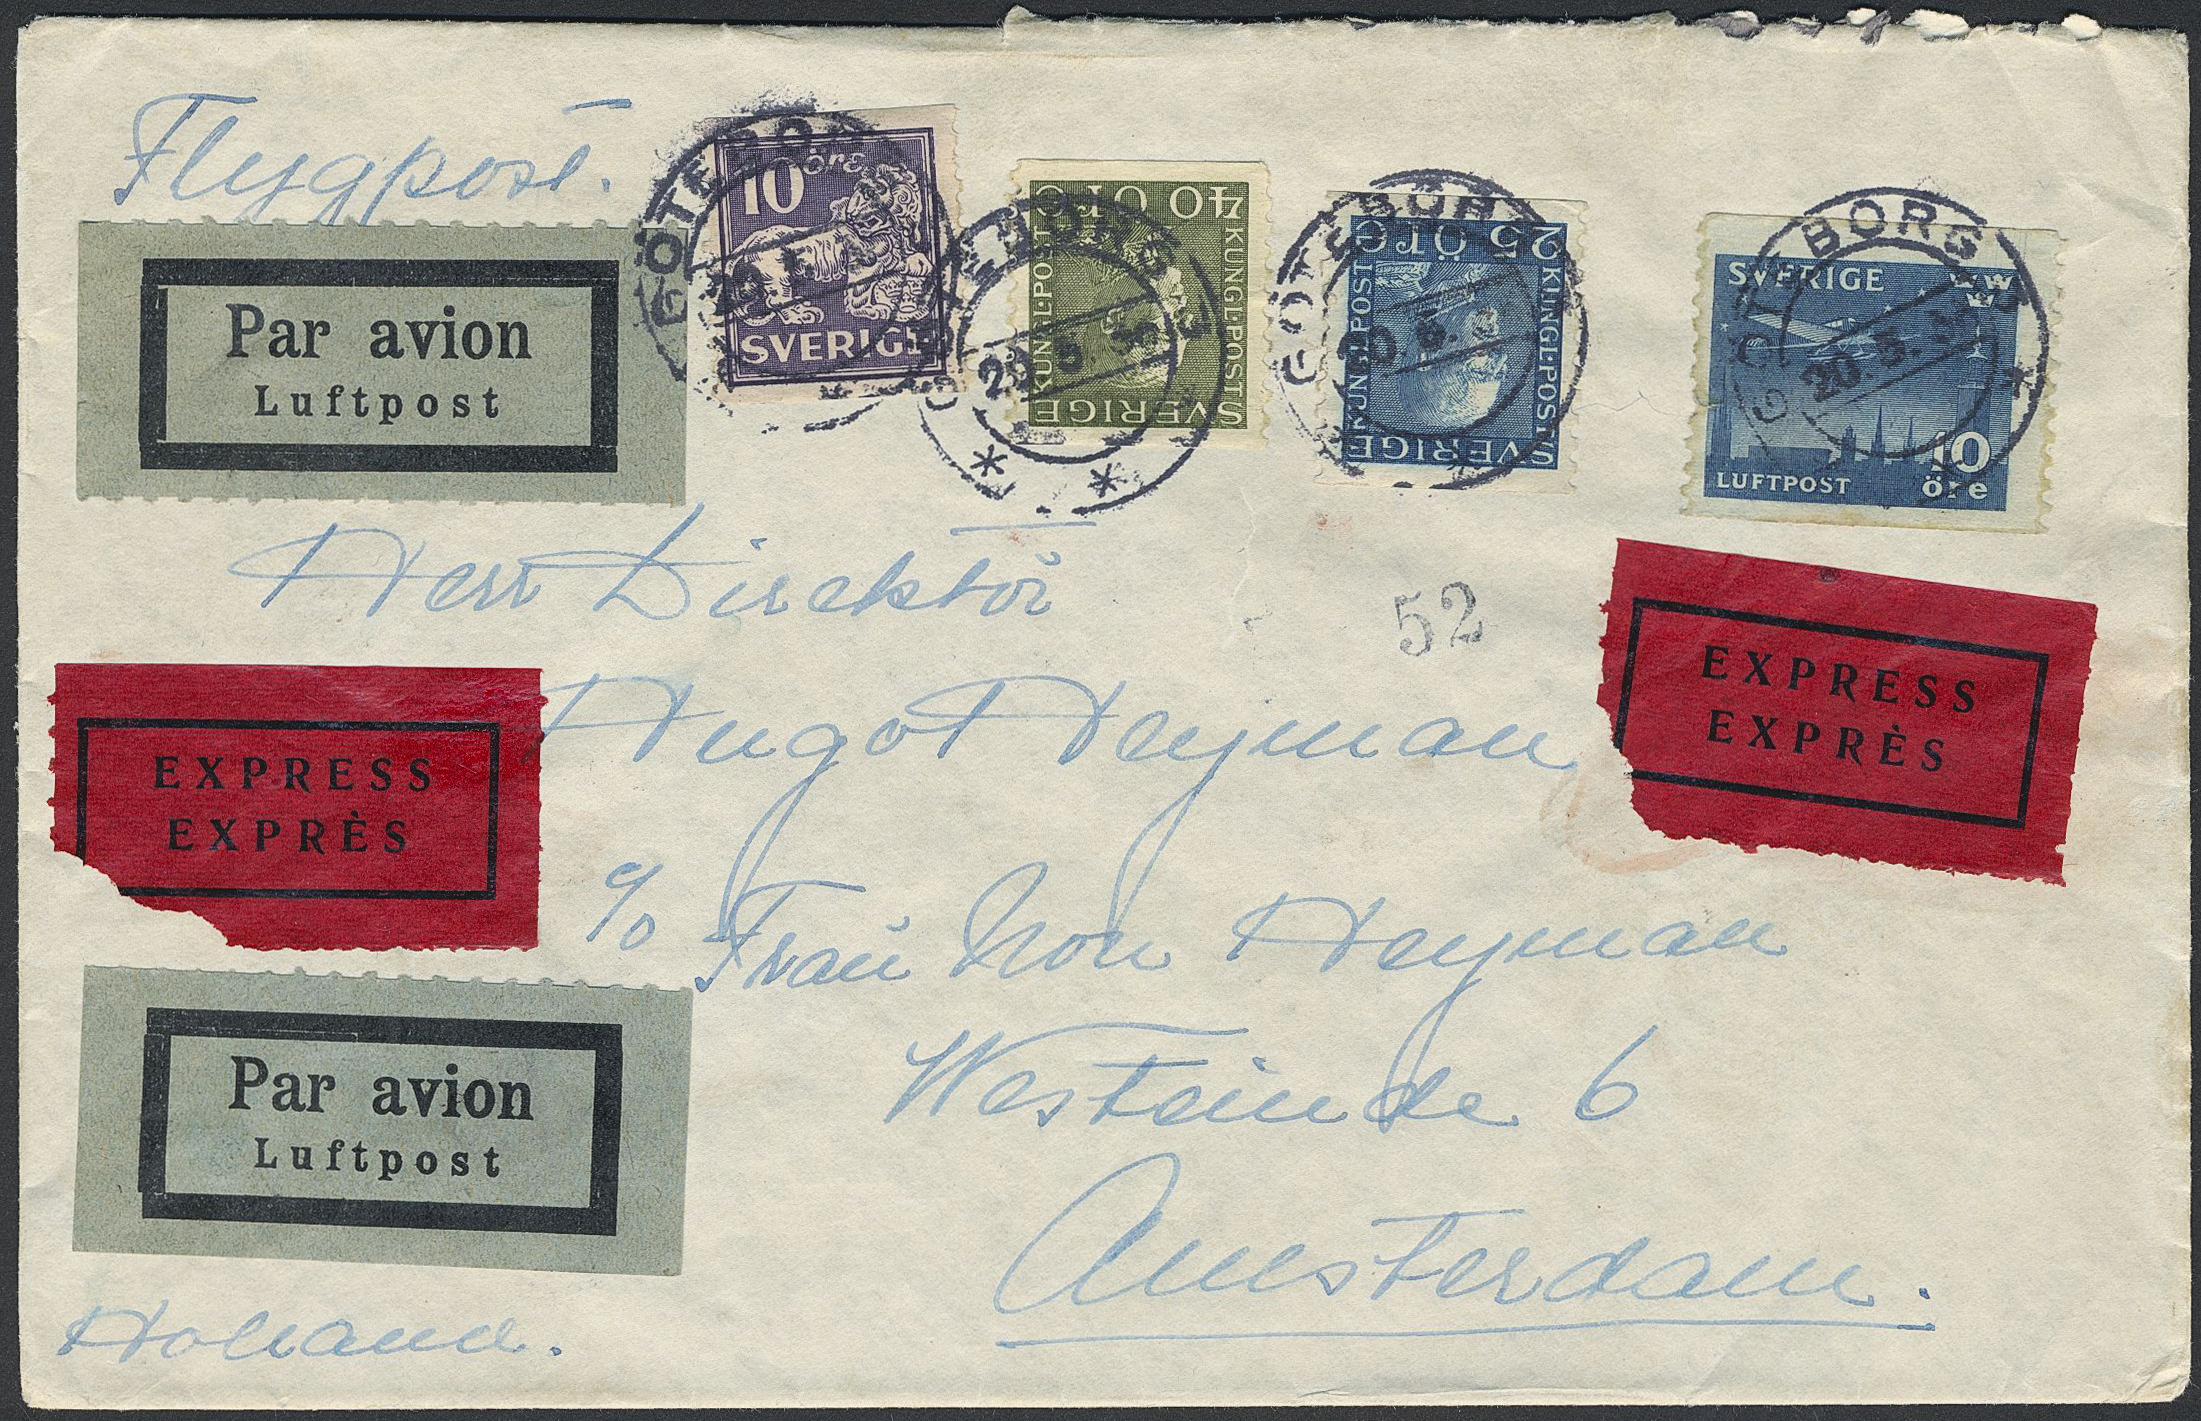 Flygpost.
Par avion
Luftpost
10 öre
SVERIGE
GÖTEBORG
40 ÖRE
KUNGL·POST
KUNGL·POST
SVERIGE
GÖTEBORG
20.5.
25 ÖRE
KUNGL·POST
KUNGL·POST
SVERIGE
GÖTEBORG
SVERIGE
10
LUFTPOST öre
GÖTEBORG
20.5.
Herr Direktör
52
EXPRESS
EXPRÈS
Hugo Heyman
EXPRESS
EXPRÈS
c/o Frau Heyman
Westeinde 6
Par avion
Luftpost
Amsterdam.
Holland.